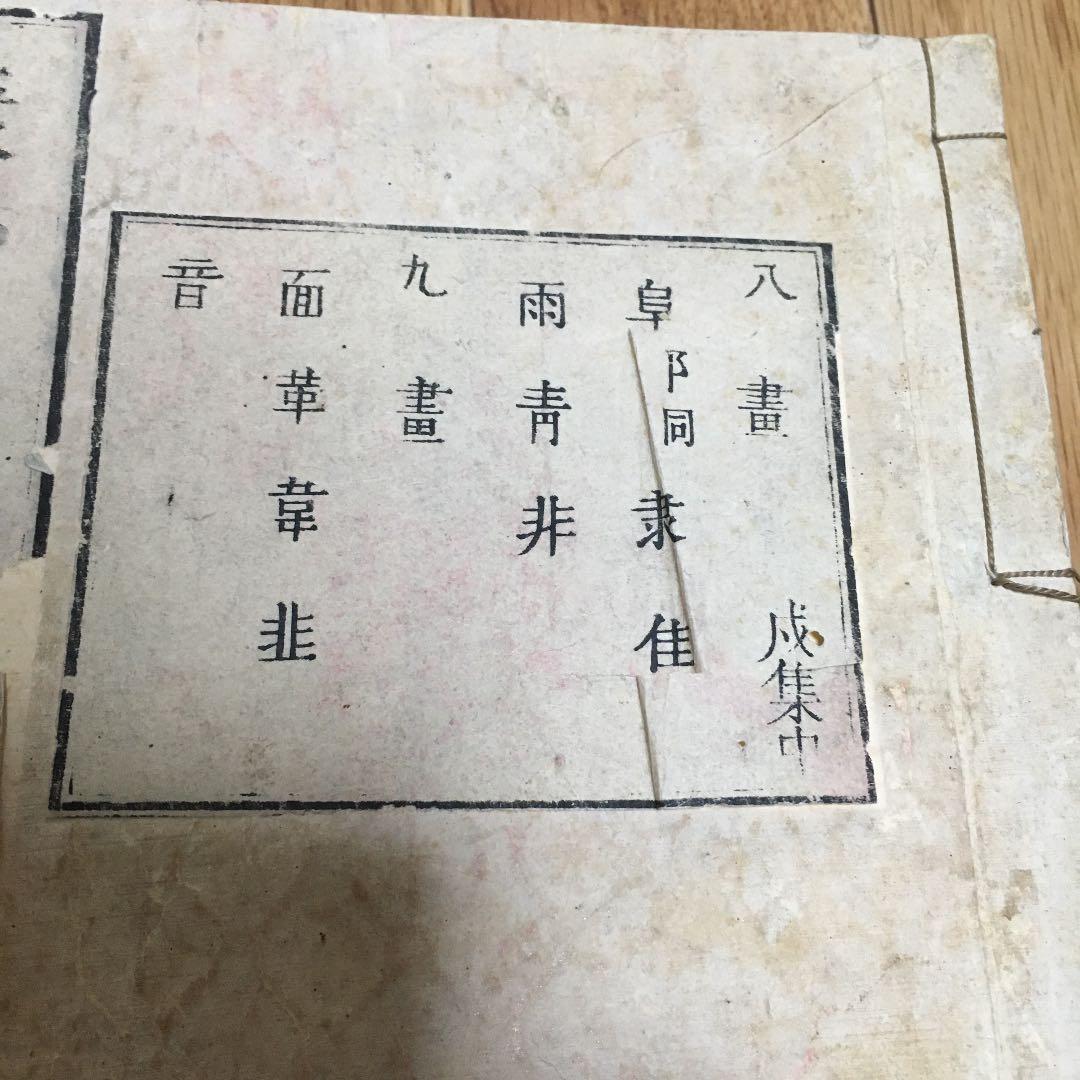 八畫 戌集中
阜阝同隶隹
雨靑非
九畫
面革韋韭
音